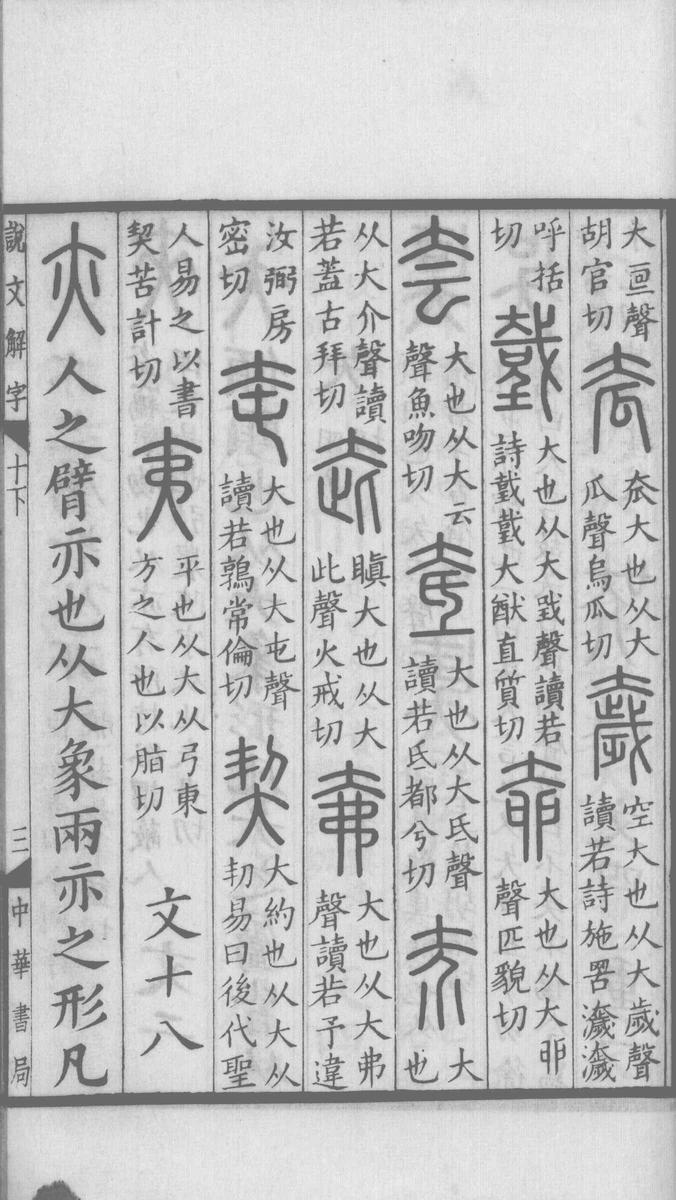 大亘聲胡官切 大也从大瓜聲烏瓜切 奯 空大也从大歲聲讀若詩施罟濊濊
呼括切 大也从大𢧤聲讀若詩𢧤𢧤大猷直質切 奅 大也从大卯聲匹貌切
夽 大也从大云聲魚吻切 奃 大也从大氐聲讀若氐都兮切 大也
从大介聲讀若蓋古拜切 瞋大也从大此聲火戒切 大也从大弗聲讀若予違
汝弼房密切 大也从大屯聲讀若鶉常倫切 契 大約也从大从㓞易曰後代聖
人易之以書契苦計切 夷 平也从大从弓東方之人也以脂切 文十八
亦 人之臂亦也从大象兩亦之形凡
說文解字 十下 三 中華書局